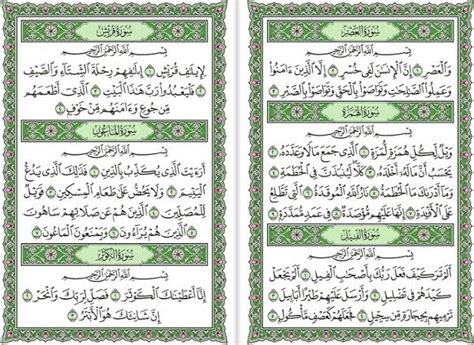 سُورَةُ العَصْرِ
بِسْمِ اللَّهِ الرَّحْمَٰنِ الرَّحِيمِ
وَالْعَصْرِ ١ إِنَّ الْإِنسَٰنَ لَفِي خُسْرٍ ٢ إِلَّا الَّذِينَ ءَامَنُوا
وَعَمِلُوا الصَّٰلِحَٰتِ وَتَوَاصَوْا بِالْحَقِّ وَتَوَاصَوْا بِالصَّبْرِ ٣
سُورَةُ الهُمَزَةِ
بِسْمِ اللَّهِ الرَّحْمَٰنِ الرَّحِيمِ
وَيْلٌ لِّكُلِّ هُمَزَةٍ لُّمَزَةٍ ١ الَّذِي جَمَعَ مَالًا وَعَدَّدَهُ ٢
يَحْسَبُ أَنَّ مَالَهُ أَخْلَدَهُ ٣ كَلَّا لَيُنۢبَذَنَّ فِي الْحُطَمَةِ ٤
وَمَا أَدْرَىٰكَ مَا الْحُطَمَةُ ٥ نَارُ اللَّهِ الْمُوقَدَةُ ٦ الَّتِي تَطَّلِعُ
عَلَى الْأَفْـِٔدَةِ ٧ إِنَّهَا عَلَيْهِم مُّؤْصَدَةٌ ٨ فِي عَمَدٍ مُّمَدَّدَةٍ ٩
سُورَةُ الفِيلِ
بِسْمِ اللَّهِ الرَّحْمَٰنِ الرَّحِيمِ
أَلَمْ تَرَ كَيْفَ فَعَلَ رَبُّكَ بِأَصْحَٰبِ الْفِيلِ ١ أَلَمْ يَجْعَلْ
كَيْدَهُمْ فِي تَضْلِيلٍ ٢ وَأَرْسَلَ عَلَيْهِمْ طَيْرًا أَبَابِيلَ ٣
تَرْمِيهِم بِحِجَارَةٍ مِّن سِجِّيلٍ ٤ فَجَعَلَهُمْ كَعَصْفٍ مَّأْكُولٍ ٥
سُورَةُ قُرَيْشٍ
بِسْمِ اللَّهِ الرَّحْمَٰنِ الرَّحِيمِ
لِإِيلَٰفِ قُرَيْشٍ ١ إِۦلَٰفِهِمْ رِحْلَةَ الشِّتَاءِ وَالصَّيْفِ
٢ فَلْيَعْبُدُوا رَبَّ هَٰذَا الْبَيْتِ ٣ الَّذِي أَطْعَمَهُم
مِّن جُوعٍ وَءَامَنَهُم مِّنْ خَوْفٍ ٤
سُورَةُ المَاعُونِ
بِسْمِ اللَّهِ الرَّحْمَٰنِ الرَّحِيمِ
أَرَءَيْتَ الَّذِي يُكَذِّبُ بِالدِّينِ ١ فَذَٰلِكَ الَّذِي يَدُعُّ
الْيَتِيمَ ٢ وَلَا يَحُضُّ عَلَىٰ طَعَامِ الْمِسْكِينِ ٣ فَوَيْلٌ
لِّلْمُصَلِّينَ ٤ الَّذِينَ هُمْ عَن صَلَاتِهِمْ سَاهُونَ
٥ الَّذِينَ هُمْ يُرَاءُونَ ٦ وَيَمْنَعُونَ الْمَاعُونَ ٧
سُورَةُ الكَوْثَرِ
بِسْمِ اللَّهِ الرَّحْمَٰنِ الرَّحِيمِ
إِنَّا أَعْطَيْنَٰكَ الْكَوْثَرَ ١ فَصَلِّ لِرَبِّكَ وَانْحَرْ
٢ إِنَّ شَانِئَكَ هُوَ الْأَبْتَرُ ٣